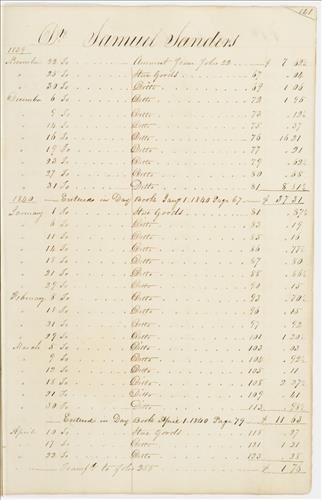 161
Dr Samuel Sanders
1839
November 22 To Amount from folio 22 $ 7 62½
" 25 To Stue Goods 67 .04
" 30 To Ditto 69 1 06
December 6 To Ditto 72 1 95
" 9 To Ditto 73 .12½
" 14 To Ditto 75 .37
" 16 To Ditto 76 16 21
" 19 To Ditto 77 .21
" 23 To Ditto 79 .62½
" 27 To Ditto 80 .68
" 31 To Ditto 81 8 81½
1840 Entered in Day Book Jany 1. 1840 Page 67 $ 37 71
January 1 To Stue Goods 81 .37½
" 6 To Ditto 83 .19
" 11 To Ditto 85 .16
" 14 To Ditto 86 .77½
" 18 To Ditto 87 .80
" 21 To Ditto 88 .86½
" 29 To Ditto 90 .15
February 5 To Ditto 93 .70½
" 18 To Ditto 96 .15
" 21 To Ditto 97 .92
" 29 To Ditto 101 1.20½
March 5 To Ditto 103 .03
" 9 To Ditto 104 .92½
" 12 To Ditto 105 .11
" 18 To Ditto 108 2 27½
" 21 To Ditto 109 .41
" 30 To Ditto 113 .98½
Entered in Day Book April 1. 1840 Page 79 $ 11 03
April 10 To Stue Goods 118 .27
" 17 To Ditto 121 .21
" 22 To Ditto 123 .28
Transfd to folio 255 $ 1 76